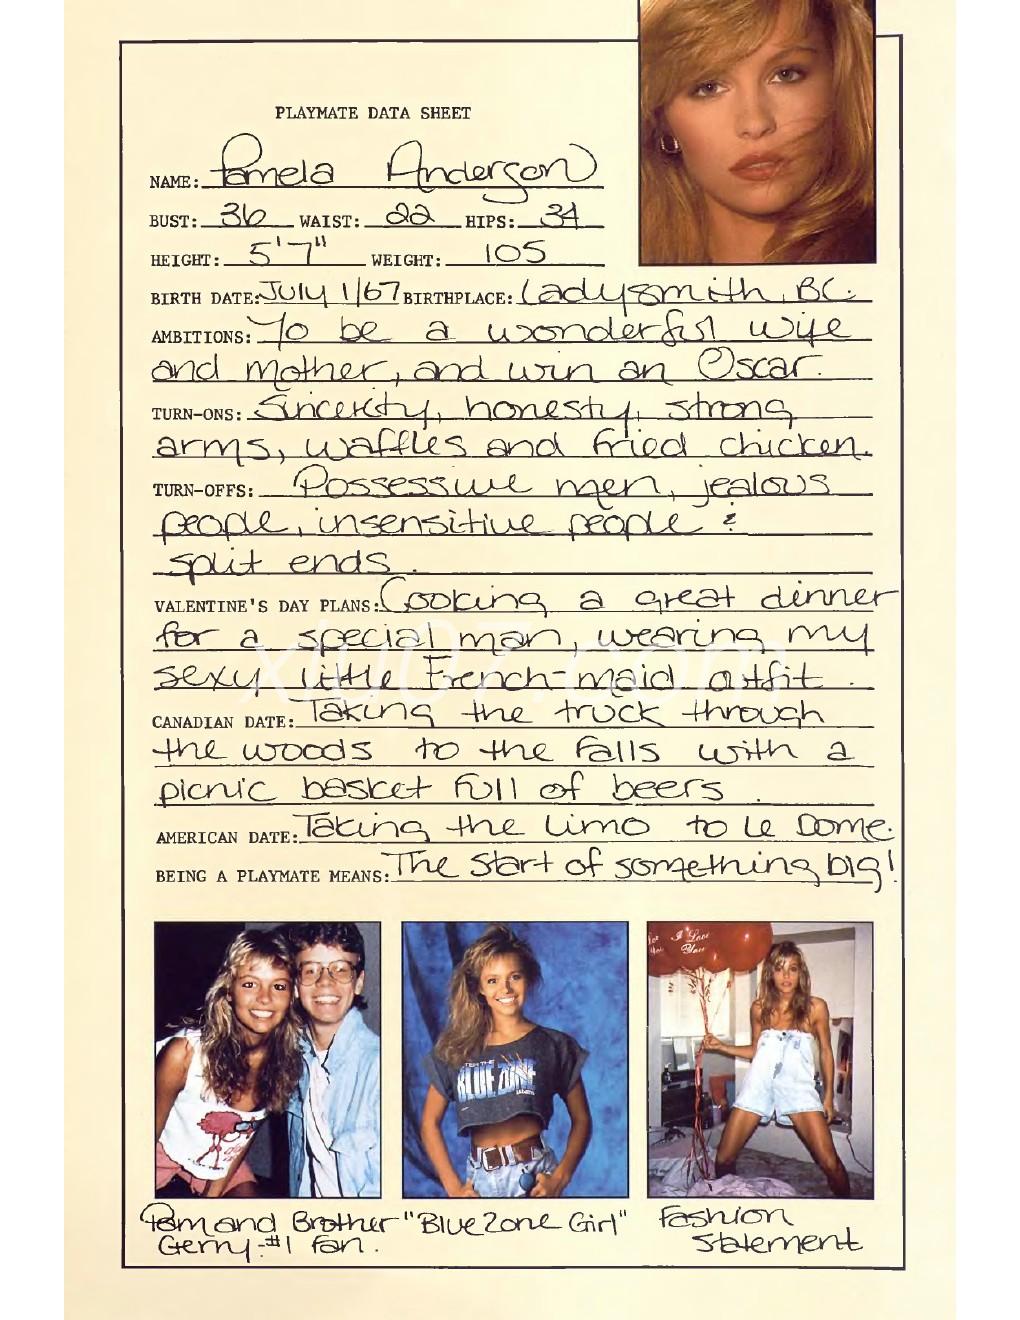 PLAYMATE DATA SHEET
NAME: Pamela Anderson
BUST: 36 WAIST: 22 HIPS: 34
HEIGHT: 5'7" WEIGHT: 105
BIRTH DATE: July 1/67 BIRTHPLACE: Ladysmith, BC.
AMBITIONS: To be a wonderful wife
and mother, and win an Oscar.
TURN-ONS: Sincerity, honesty, strong
arms, waffles and fried chicken.
TURN-OFFS: Possessive men, jealous
people, insensitive people &
split ends.
VALENTINE'S DAY PLANS: Cooking a great dinner
for a special man, wearing my
sexy little French-maid outfit.
xiu07.com
CANADIAN DATE: Taking the truck through
the woods to the falls with a
picnic basket full of beers.
AMERICAN DATE: Taking the limo to Le Dome.
BEING A PLAYMATE MEANS: The start of something big!
I Love
You
BLUE ZONE
Pam and Brother
Gerry-#1 fan.
"Blue Zone Girl"
Fashion
Statement